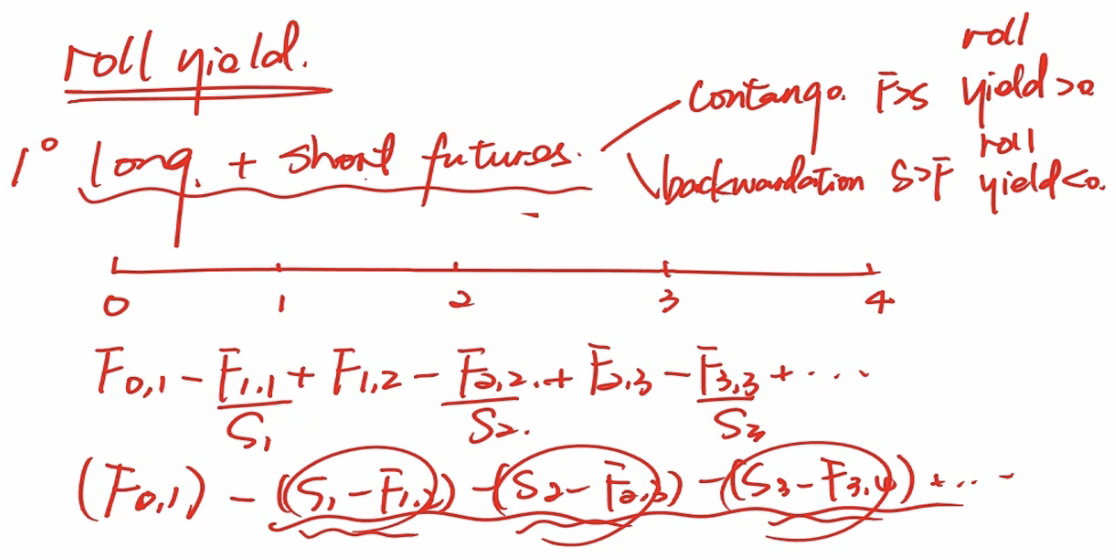 roll yield.
1° long + short futures.
contango. F>S roll yield>0
backwardation S>F roll yield<0.
0 1 2 3 4
F0,1 - F1,1 + F1,2 - F2,2 + F2,3 - F3,3 + ...
S1 S2. S3
(F0,1) - (S1 - F1,2) - (S2 - F2,3) - (S3 - F3,4) + ...